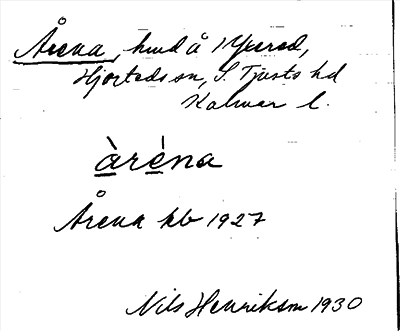 Årena, hmd å Myserod,
Hjorteds sn, S. Tjusts hd
Kalmar l.
àréna
Årena kb 1927
Nils Henriksson 1930